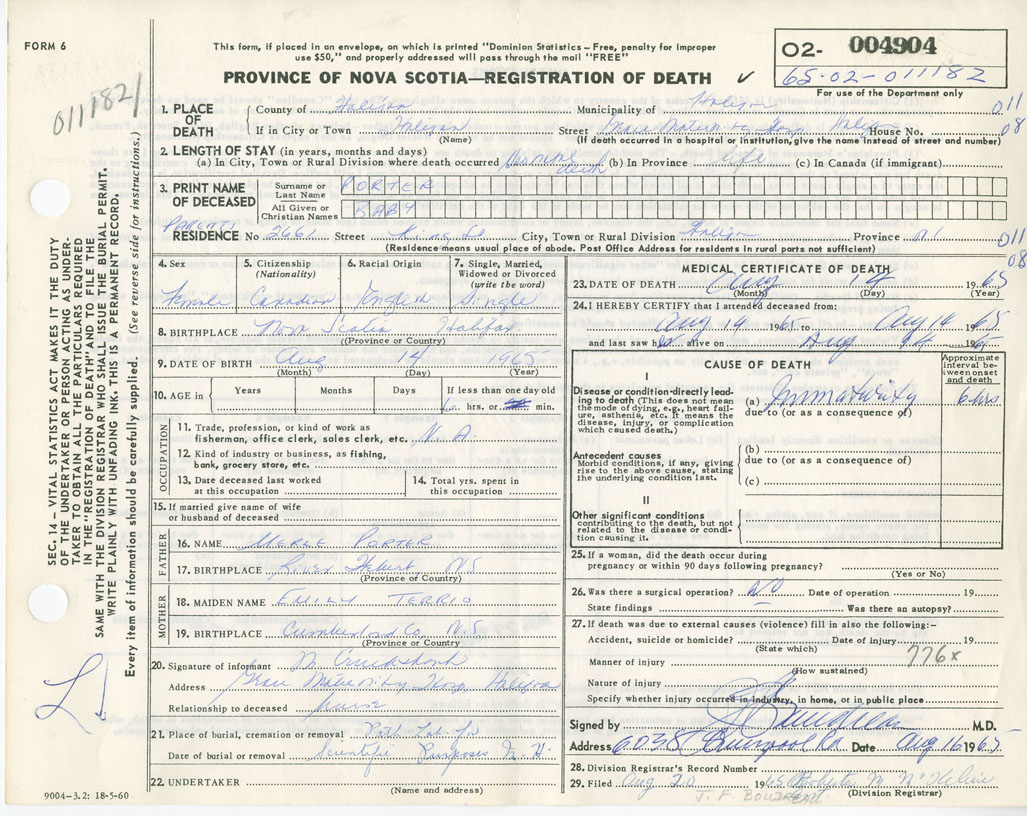 FORM 6
This form, if placed in an envelope, on which is printed "Dominion Statistics – Free, penalty for improper
use $50," and properly addressed will pass through the mail "FREE"
PROVINCE OF NOVA SCOTIA—REGISTRATION OF DEATH ✓
O2- 004904
65-02-011182
For use of the Department only
011182
1. PLACE OF DEATH
County of Halifax Municipality of Halifax 011
If in City or Town Halifax Street Grace Maternity Hosp. Halifax House No. 08
(Name) (If death occurred in a hospital or institution, give the name instead of street and number)
2. LENGTH OF STAY (in years, months and days)
(a) In City, Town or Rural Division where death occurred death (b) In Province life (c) In Canada (if immigrant)
3. PRINT NAME OF DECEASED
Surname or Last Name PORTER
All Given or Christian Names BABY
PARENTS
RESIDENCE No. 2661 Street King St City, Town or Rural Division Halifax Province N.S. 011
(Residence means usual place of abode. Post Office Address for residents in rural parts not sufficient) 08
4. Sex Female
5. Citizenship (Nationality) Canadian
6. Racial Origin English
7. Single, Married, Widowed or Divorced (write the word) Single
8. BIRTHPLACE Nova Scotia Halifax
(Province or Country)
9. DATE OF BIRTH Aug 14 1965
(Month) (Day) (Year)
10. AGE in Years Months Days If less than one day old
6 hrs. or min.
OCCUPATION
11. Trade, profession, or kind of work as fisherman, office clerk, sales clerk, etc. N. A.
12. Kind of industry or business, as fishing, bank, grocery store, etc.
13. Date deceased last worked at this occupation
14. Total yrs. spent in this occupation
15. If married give name of wife or husband of deceased
FATHER
16. NAME MERLE PORTER
17. BIRTHPLACE River Hebert N S
(Province or Country)
MOTHER
18. MAIDEN NAME EMILY TERRIO
19. BIRTHPLACE Cumberland Co. N.S
(Province or Country)
20. Signature of informant M. Cruickshank
Address Grace Maternity Hosp. Halifax
Relationship to deceased Nurse
21. Place of burial, cremation or removal Path Lab. for
Date of burial or removal Scientific Purposes
22. UNDERTAKER
(Name and address)
9004–3.2: 18-5-60
MEDICAL CERTIFICATE OF DEATH
23. DATE OF DEATH Aug 14 1965
(Month) (Day) (Year)
24. I HEREBY CERTIFY that I attended deceased from:
Aug 14 1965 to Aug 14 1965
and last saw h alive on Aug 14 196
CAUSE OF DEATH
Approximate interval between onset and death
I
Disease or condition directly leading to death (This does not mean the mode of dying, e.g., heart failure, asthenia, etc. It means the disease, injury, or complication which caused death.)
(a) Immaturity 6 hrs
due to (or as a consequence of)
Antecedent causes
Morbid conditions, if any, giving rise to the above cause, stating the underlying condition last.
(b)
due to (or as a consequence of)
(c)
II
Other significant conditions
contributing to the death, but not related to the disease or condition causing it.
25. If a woman, did the death occur during pregnancy or within 90 days following pregnancy?
(Yes or No)
26. Was there a surgical operation? NO Date of operation 19
State findings Was there an autopsy?
27. If death was due to external causes (violence) fill in also the following:-
Accident, suicide or homicide? Date of injury 19
(State which)
776x
Manner of injury
(How sustained)
Nature of injury
Specify whether injury occurred in industry, in home, or in public place
Signed by Boudreau M.D.
Address 6038 Date Aug 16 1965
28. Division Registrar's Record Number
29. Filed Aug 20 1965
(Division Registrar)
J. F. BOUDREAU
SEC. 14 – VITAL STATISTICS ACT MAKES IT THE DUTY
OF THE UNDERTAKER OR PERSON ACTING AS UNDER-
TAKER TO OBTAIN ALL THE PARTICULARS REQUIRED
IN THE "REGISTRATION OF DEATH" AND TO FILE THE
SAME WITH THE DIVISION REGISTRAR WHO SHALL ISSUE THE BURIAL PERMIT.
WRITE PLAINLY WITH UNFADING INK. THIS IS A PERMANENT RECORD.
Every item of information should be carefully supplied. (See reverse side for instructions.)